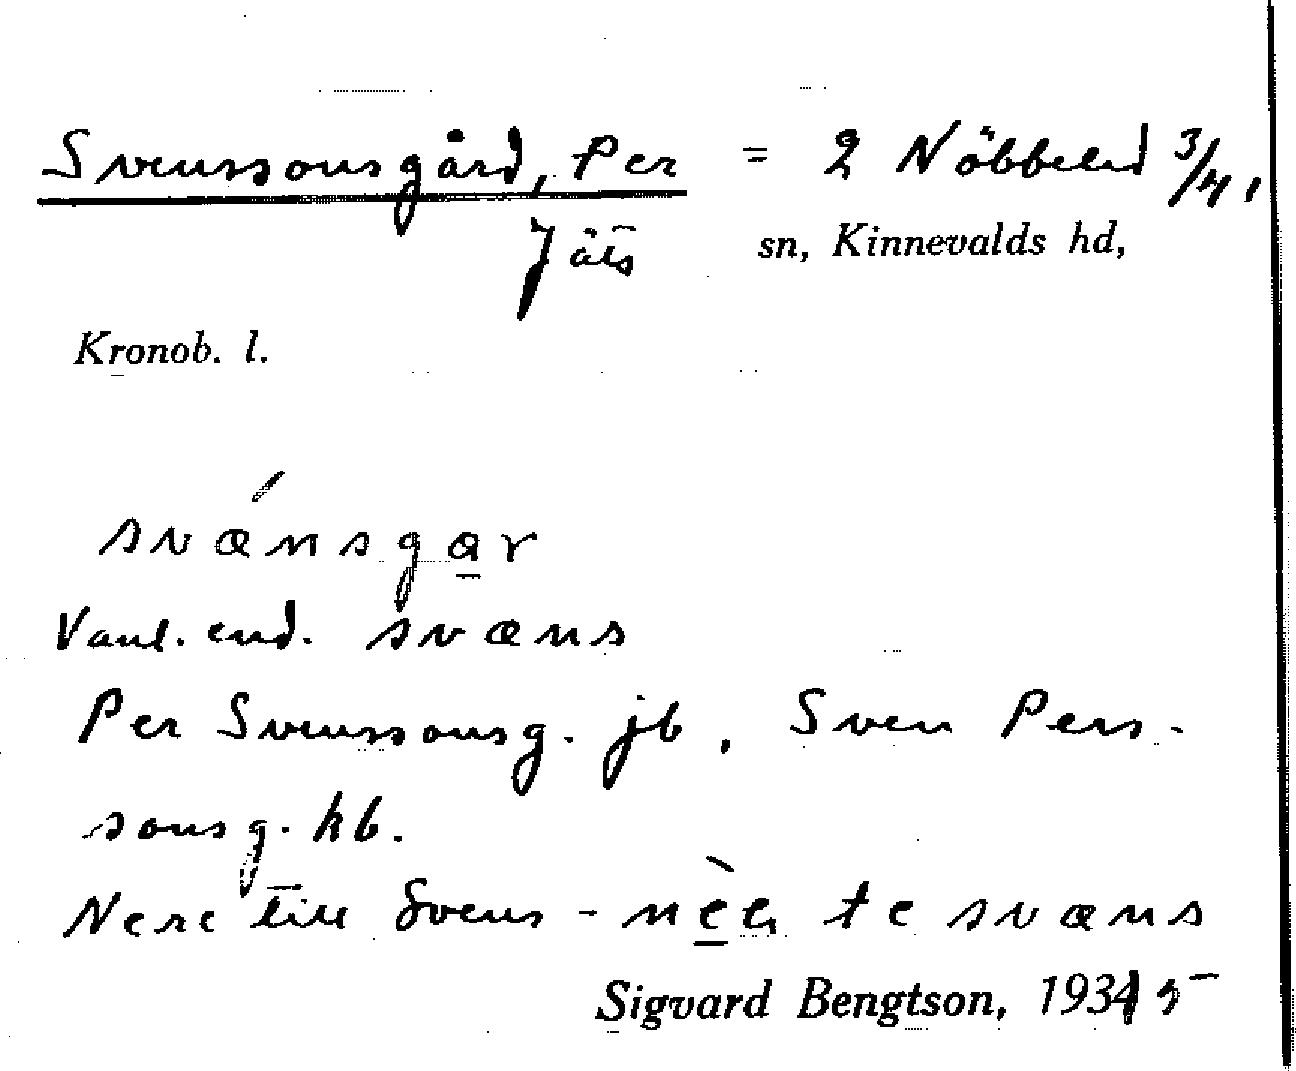 Svenssonsgård, Per = 2 Nöbbeled 3/4,
Jäts sn, Kinnevalds hd,
Kronob. l.
svǽnsgar
Vanl. end. svæns
Per Svenssonsg. jb, Sven Pers-
sonsg. hb.
Nere till Svens - te svæns
Sigvard Bengtson, 1935